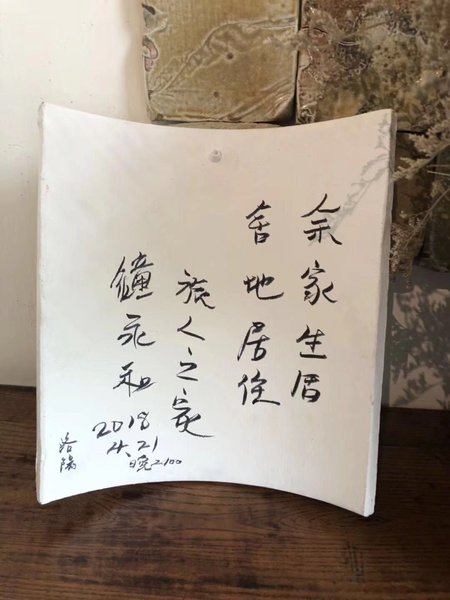 余家生
舍地居住
旅人之家
鐘永和
2018
4.21
晚2100
洛陽